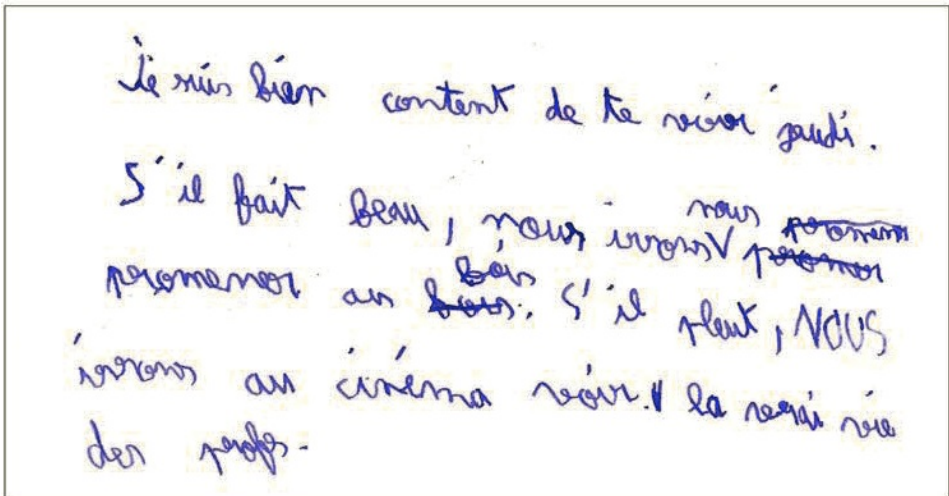 Je suis bien content de te voir jeudi.
S'il fait beau, nous irons nous
promener au bois. S'il pleut, NOUS
irrons au cinéma voir la vrai vie
des profs.